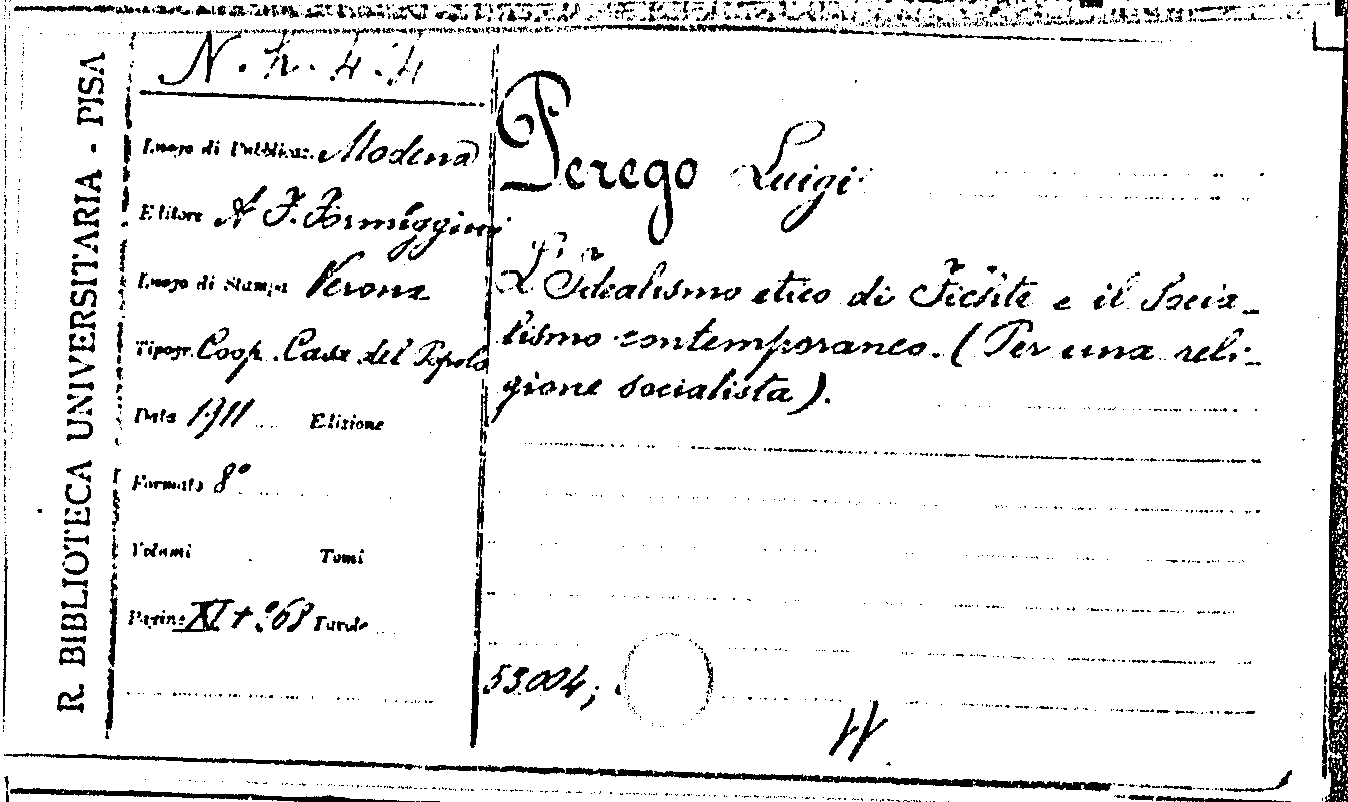 R. BIBLIOTECA UNIVERSITARIA - PISA
N. h. 4. 4
Luogo di Pubblicaz. Modena
Editore A F. Formiggini
Luogo di Stampa Verona
Tipogr. Coop. Casa del Popolo
Data 1911 Edizione
Formato 8°
Volumi Tomi
Pagine XI + 268 Tavole
Perego Luigi
L'Idealismo etico di Fichte e il Socia-
lismo contemporaneo. (Per una reli-
gione socialista).
53004;